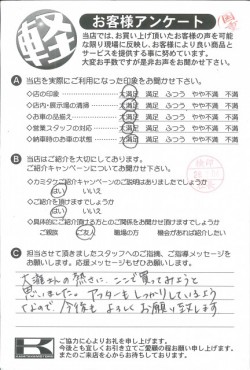 軽
お客様アンケート
当店では、お買い上げ頂いたお客様の声を可能
な限り現場に反映し、お客様により良い商品と
サービスを提供する事に努めています。
大変お手数ですが是非お声をお聞かせ下さい。
A 当店を実際にご利用になった印象をお聞かせ下さい。
◇店の印象 大満足 満足 ふつう やや不満 不満
◇店内・展示場の清掃 大満足 満足 ふつう やや不満 不満
◇お車の品揃え 大満足 満足 ふつう やや不満 不満
◇営業スタッフの対応 大満足 満足 ふつう やや不満 不満
◇納車時のお車の状態 大満足 満足 ふつう やや不満 不満
B 当店はご紹介を大切にしてあります。
ご紹介キャンペーンについてお聞かせ下さい。
◇カミタケご紹介キャンペーンのご説明はありましたでしょうか
はい いいえ
◇ご紹介を頂けますでしょうか
はい いいえ
◇具体的にご紹介頂ける方とのご関係をお聞かせ頂けますでしょうか
ご親族 ご友人 職場の方 機会があれば紹介したい
C 担当させて頂きましたスタッフへのご指摘、ご指導メッセージを
お願いします。応援メッセージもぜひお願いします。
さんの熱さに、ここで買ってみようと
思いました。アフターもしっかりしているよう
なので、今後もよろしくお願い致します
K
ご協力に心よりお礼を申し上げます。
今後とも宜しくお引き立てご愛顧の程お願い申し上げます。
またのご来店を心からお待ちしております。